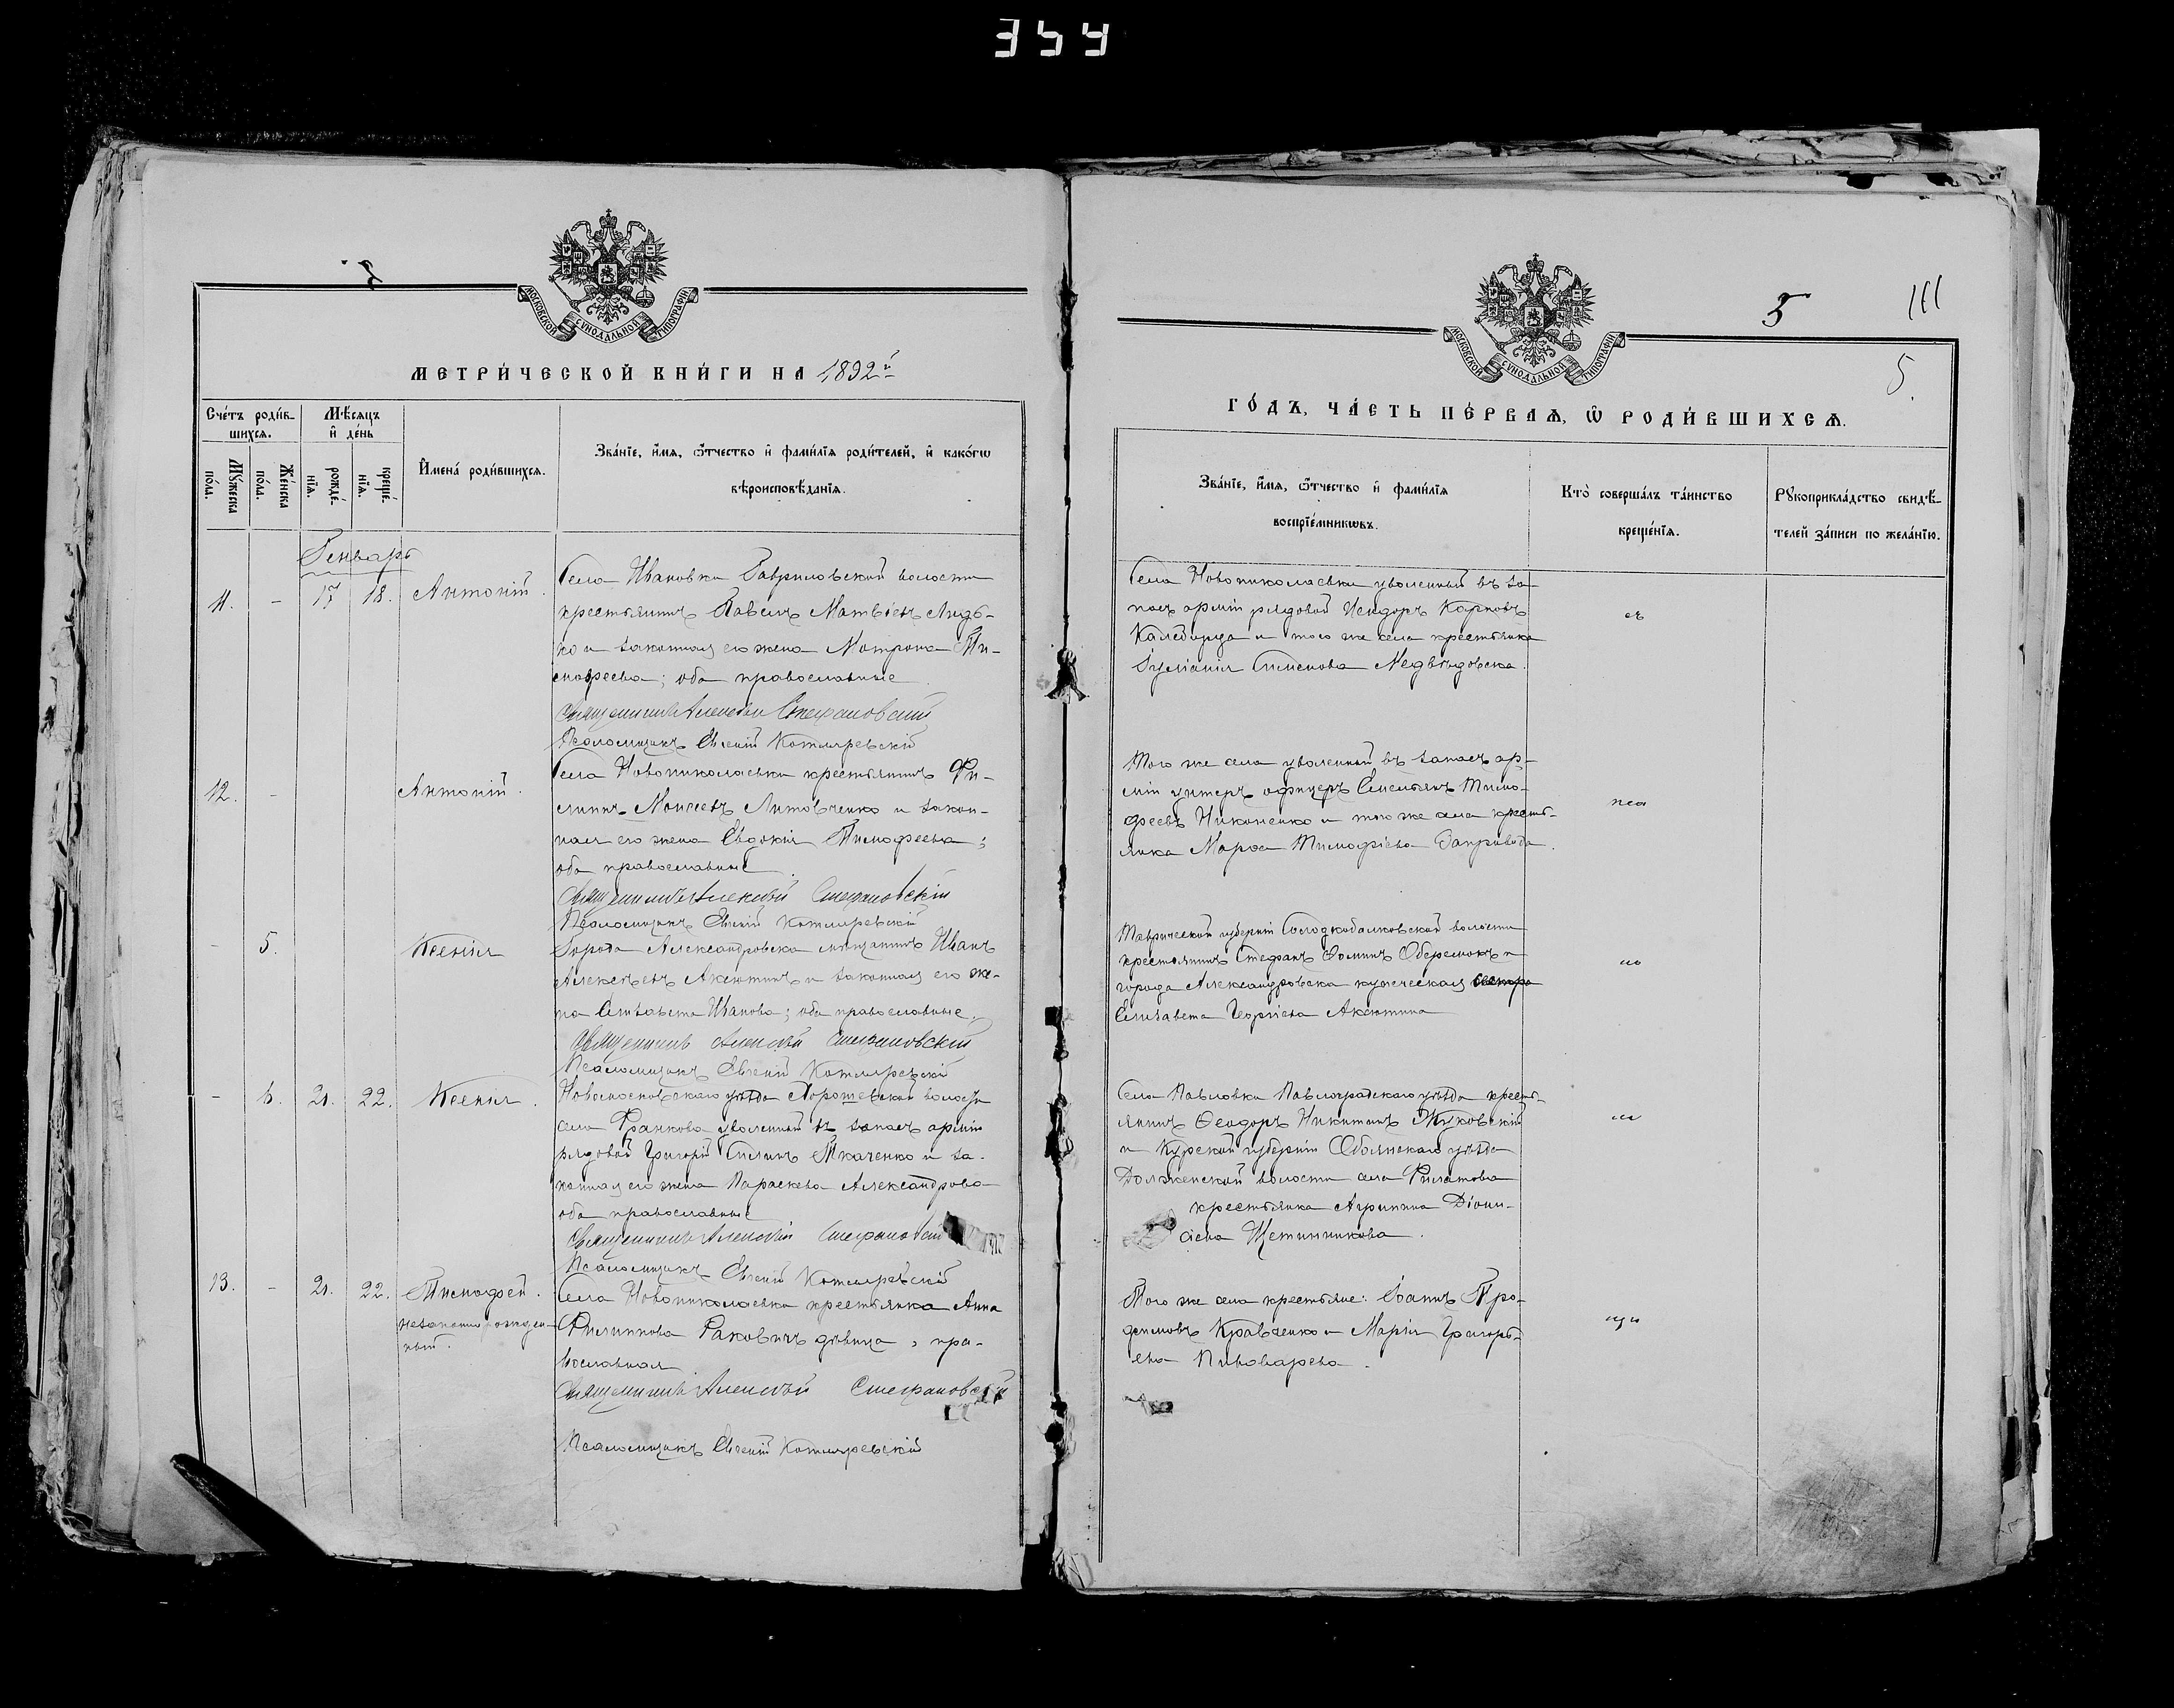 354
МОСКОВСКОЙ СѴНОДАЛЬНОЙ ТИПОГРАФІИ
МЕТРИ́ЧЕСКОЙ КНИ́ГИ НА 1892й
Сче́тъ роди́в-
шихсѧ.
Мѣ́сѧцъ
и҆ де́нь
Мꙋ́жеска
по́ла.
Же́нска
по́ла.
рожде́-
нїѧ.
креще́-
нїѧ.
И҆мена́ роди́вшихсѧ.
Зва́нїе, и҆́мѧ, ѻ҆́тчество и҆ фами́лїѧ роди́телей, и҆ како́гѡ
вѣроисповѣ́данїѧ.
Генварь
11. - 17 18. Антоній.
Села Ивановки Гавриловской волости
крестьянинъ Павелъ Матвіевъ
и законная его жена Мотрона Ти-
мофеева; оба православные.
Священникъ Алексѣй Стефановскій
Псаломщикъ Евгеній Котляревскій
12. - Антоній.
Села Новониколаевки крестьянинъ Фи-
липпъ Моисеевъ Литовченко и закон-
ная его жена Евдокія Тимофеева;
оба православные.
Священникъ Алексѣй Стефановскій
Псаломщикъ Евгеній Котляревскій
- 5. Ксенія
Города Александровска мѣщанинъ Иванъ
Алексѣевъ Аксютинъ и законная его же-
на Елизавета Иванова; оба православные.
Священникъ Алексѣй Стефановскій
Псаломщикъ Евгеній Котляревскій
- 6. 21. 22. Ксенія.
Новомосковскаго уѣзда волости
села уволенный въ запасъ арміи
рядовой Григорій Ткаченко и за-
конная его жена Параскева Александрова
оба православные
Священникъ Алексѣй Стефановскій
Псаломщикъ Евгеній Котляревскій
13. - 21. 22. Тимофей.
незаконно рожден-
ный.
Села Новониколаевка крестьянка Анна
Филиппова Раковичъ дѣвица, пра-
вославная
Священникъ Алексѣй Стефановскій
Псаломщикъ Евгеній Котляревскій
МОСКОВСКОЙ СѴНОДАЛЬНОЙ ТИПОГРАФІИ
5
5.
ГО́ДЪ, ЧА́СТЬ ПЕ́РВАѦ, Ѿ РОДИ́ВШИХСѦ.
Зва́нїе, и҆́мѧ, ѻ҆́тчество и҆ фами́лїѧ
воспрїе́мникѡвъ.
Кто̀ соверша́лъ та́инство
креще́нїѧ.
Рꙋкоприкла́дство свидѣ́-
телей за́писи по жела́нїю.
Села Новониколаевки уволенный въ за-
пасъ арміи рядовой Исидоръ Карповъ
и того же села крестьянка
Іуліанія Медвѣдовска.
Того же села уволенный въ запасъ ар-
міи унтеръ офицеръ Емельянъ Тимо-
феевъ Никоненко и того же села кресть-
янка Марѳа Тимофіева
Таврической губерніи волости
крестьянинъ Стефанъ Ѳоминъ и
города Александровска купеческая
Елизавета Георгіева Аксютина
Села Павловки Павлоградскаго уѣзда кресть-
янинъ Ѳеодоръ Никитинъ Жуковскій
и Курской губерніи Обоянскаго уѣзда
Долженской волости села Филатова
крестьянка Агрипина Діони-
сіева Щетинникова.
Того же села крестьяне: Іоаннъ Тро-
фимовъ Кравченко и Марія Григорь-
ева Пивоварева.